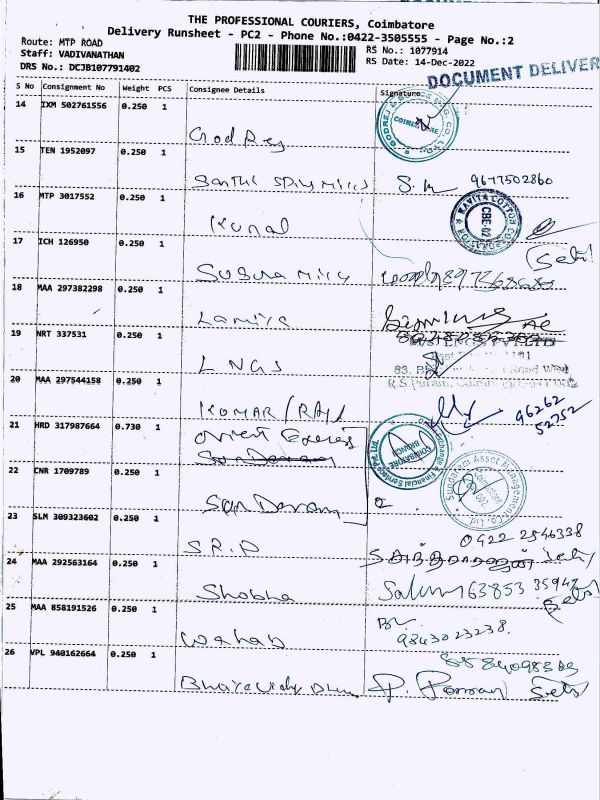 THE PROFESSIONAL COURIERS, Coimbatore
Delivery Runsheet - PC2 - Phone No.:0422-3505555 - Page No.:2
Route: MTP ROAD
Staff: VADIVANATHAN
DRS No.: DCJB107791402
RS No.: 1077914
RS Date: 14-Dec-2022
DOCUMENT DELIVER
S No Consignment No Weight PCS Consignee Details Signature
14 IXM 502761556 0.250 1
COIMBATORE
Godrej
15 TEN 1952097 0.250 1
Santhi Spinning Mills S. K 9677502860
16 MTP 3017552 0.250 1
KAVITA COTTON
CBE-02
Kunal
17 ICH 126950 0.250 1
Suguna Mills
18 MAA 297382298 0.250 1
Lamiya
19 NRT 337531 0.250 1
LNGS
83. Road West
R.S.Puram,
20 MAA 297544158 0.250 1
KUMAR / RAJ
96262
52752
21 HRD 317987664 0.730 1
Orient Express
Sundaram
Exchange & Financial Services Pvt. Ltd.
COIMBATORE
BRANCH
22 CNR 1709789 0.250 1
Sundaram
Sundaram Asset Management Co. Ltd
23 SLM 309323602 0.250 1
S.R.P
0422 2546338
24 MAA 292563164 0.250 1
Shobha
63853 35947
25 MAA 858191526 0.250 1
Wahab
9843023238
26 VPL 940162664 0.250 1
P.